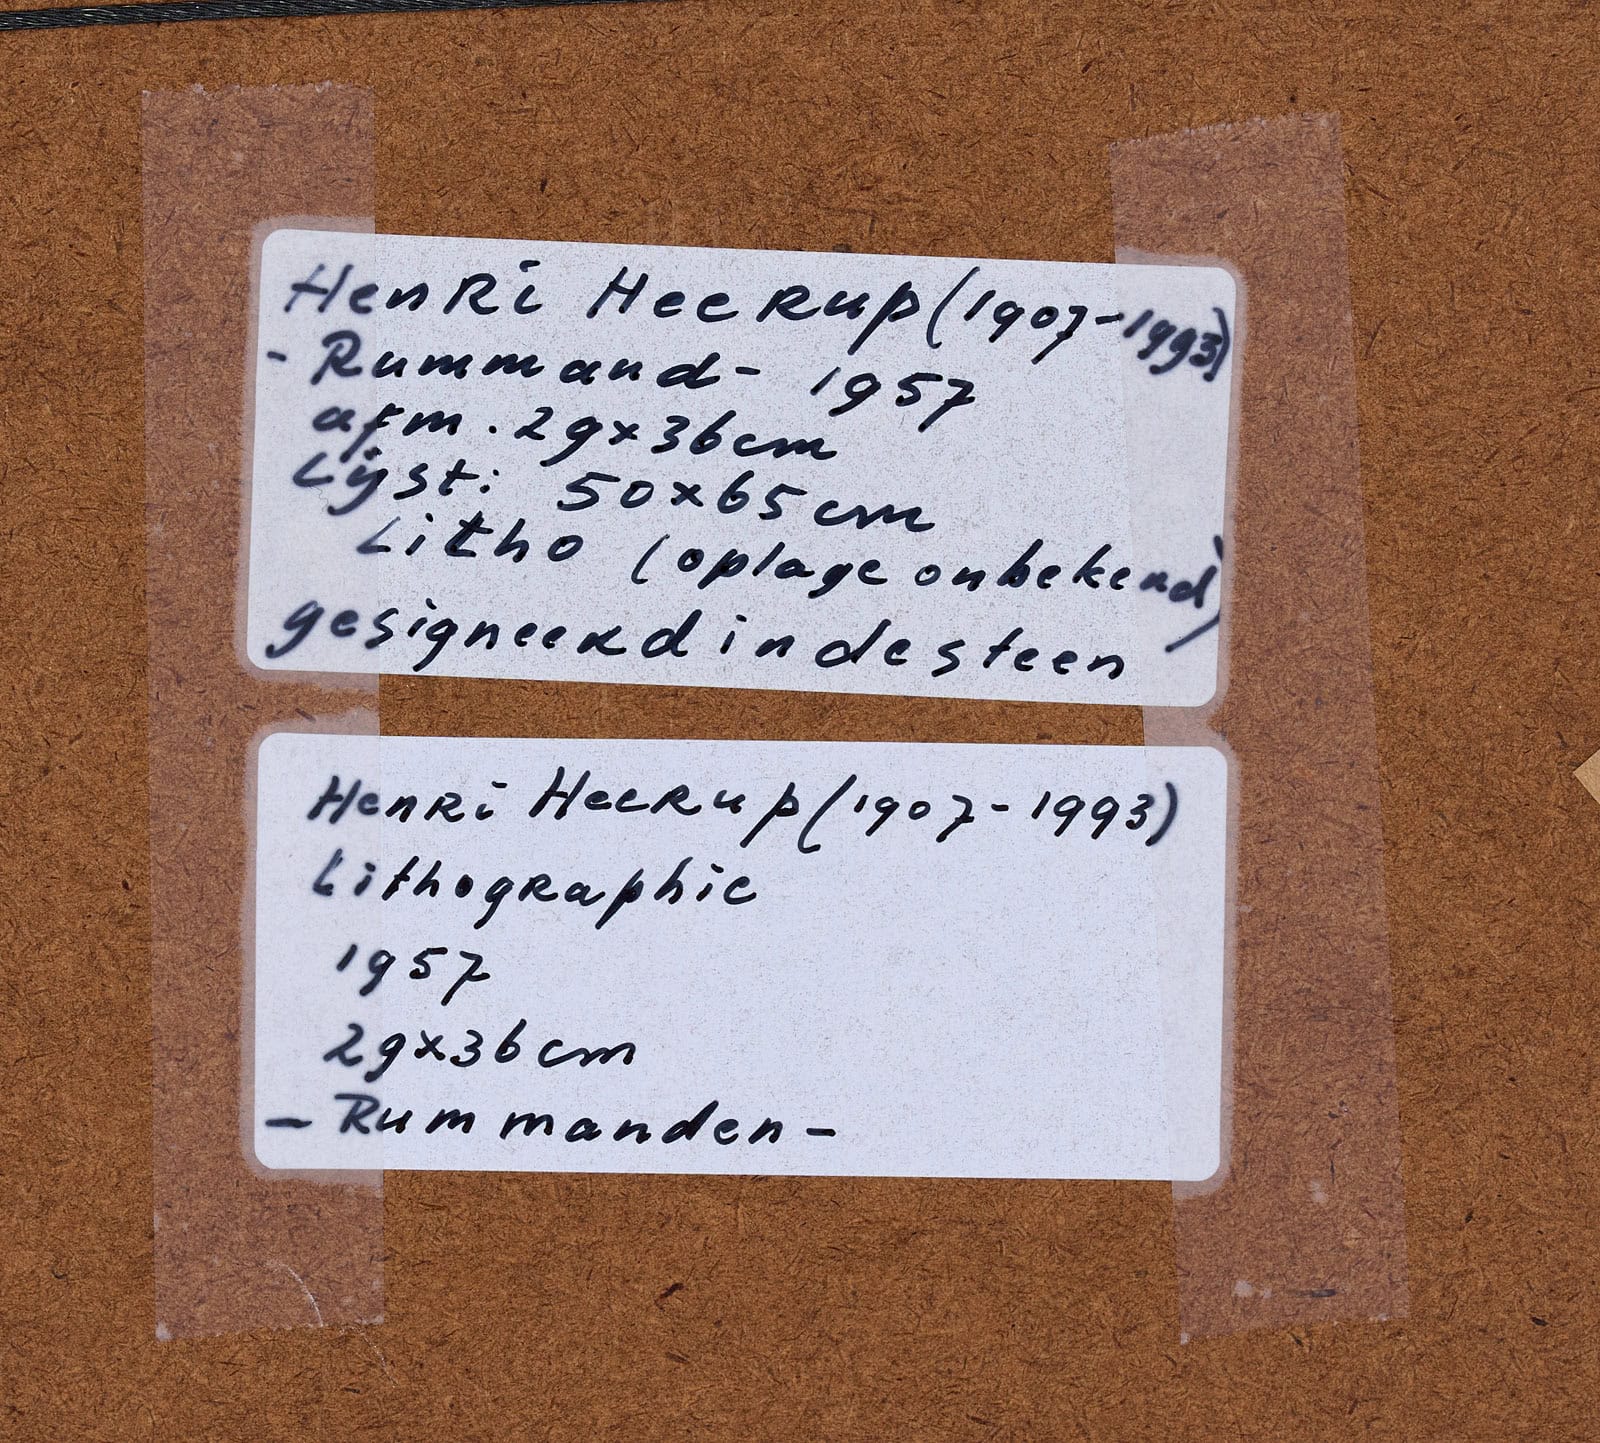 Henri Heerup (1907-1993)
- Rummand - 1957
afm. 29x36cm
Lijst: 50x65cm
Litho (oplage onbekend)
gesigneerd in de steen
Henri Heerup (1907-1993)
Lithographie
1957
29x36cm
- Rummanden -